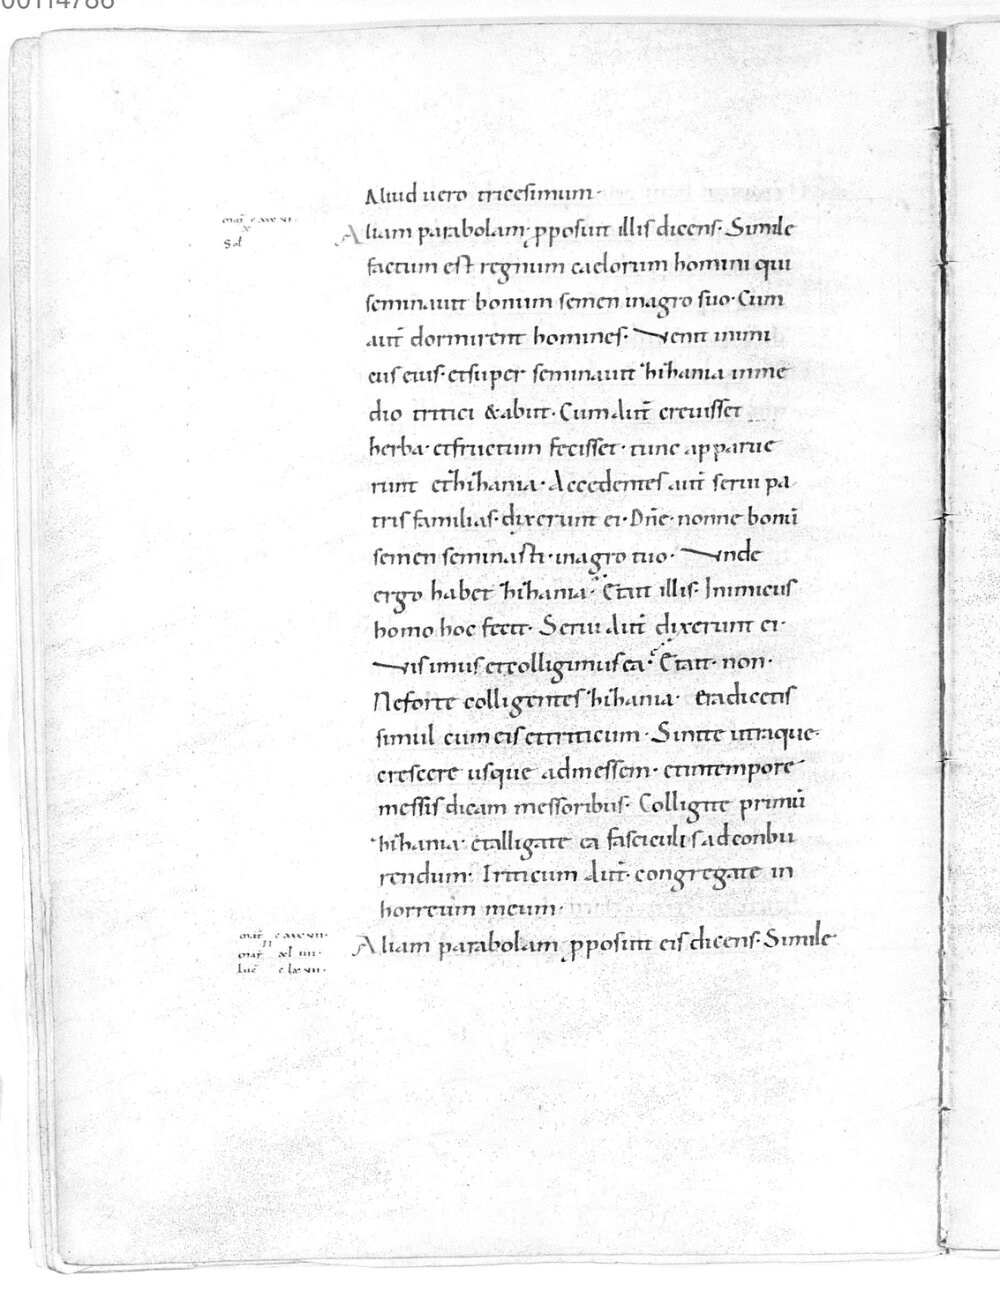 00114786
Aliud uero tricesimum·
Aliam parabolam· p̄posuit illis dicens· Simile
factum est regnum caelorum homini qui
seminauit bonum semen inagro suo· Cum
aut̄ dormirent homines· Venit inimi
cus eius· etsuper seminauit hihania inme
dio tritici &abiit· Cum Aut̄ creuisset
herba· etfructum fecisset· tunc apparue
runt et hihania· Accedentes aut̄ serui pa
tris familias· dixerunt ei· Dn̄e· nonne bonū
semen seminasti· inagro tuo· Vnde
ergo habet hihania· Etait illis· Inimicus
homo hoc fecit· Serui Aut̄ dixerunt ei·
Visimus etcolligimus ea· Etait· non·
Neforte colligentes hihania· eradicetis
simul cum eis ettriticum· Sinite utraque
crescere usque admessem· etintempore
messis dicam messoribus· Colligite primū
hihania· etalligate ea fasciculis adconbu
rendum· Triticum Aut̄· congregate in
horreum meum·
Aliam parabolam p̄posuit eis dicens· Simile